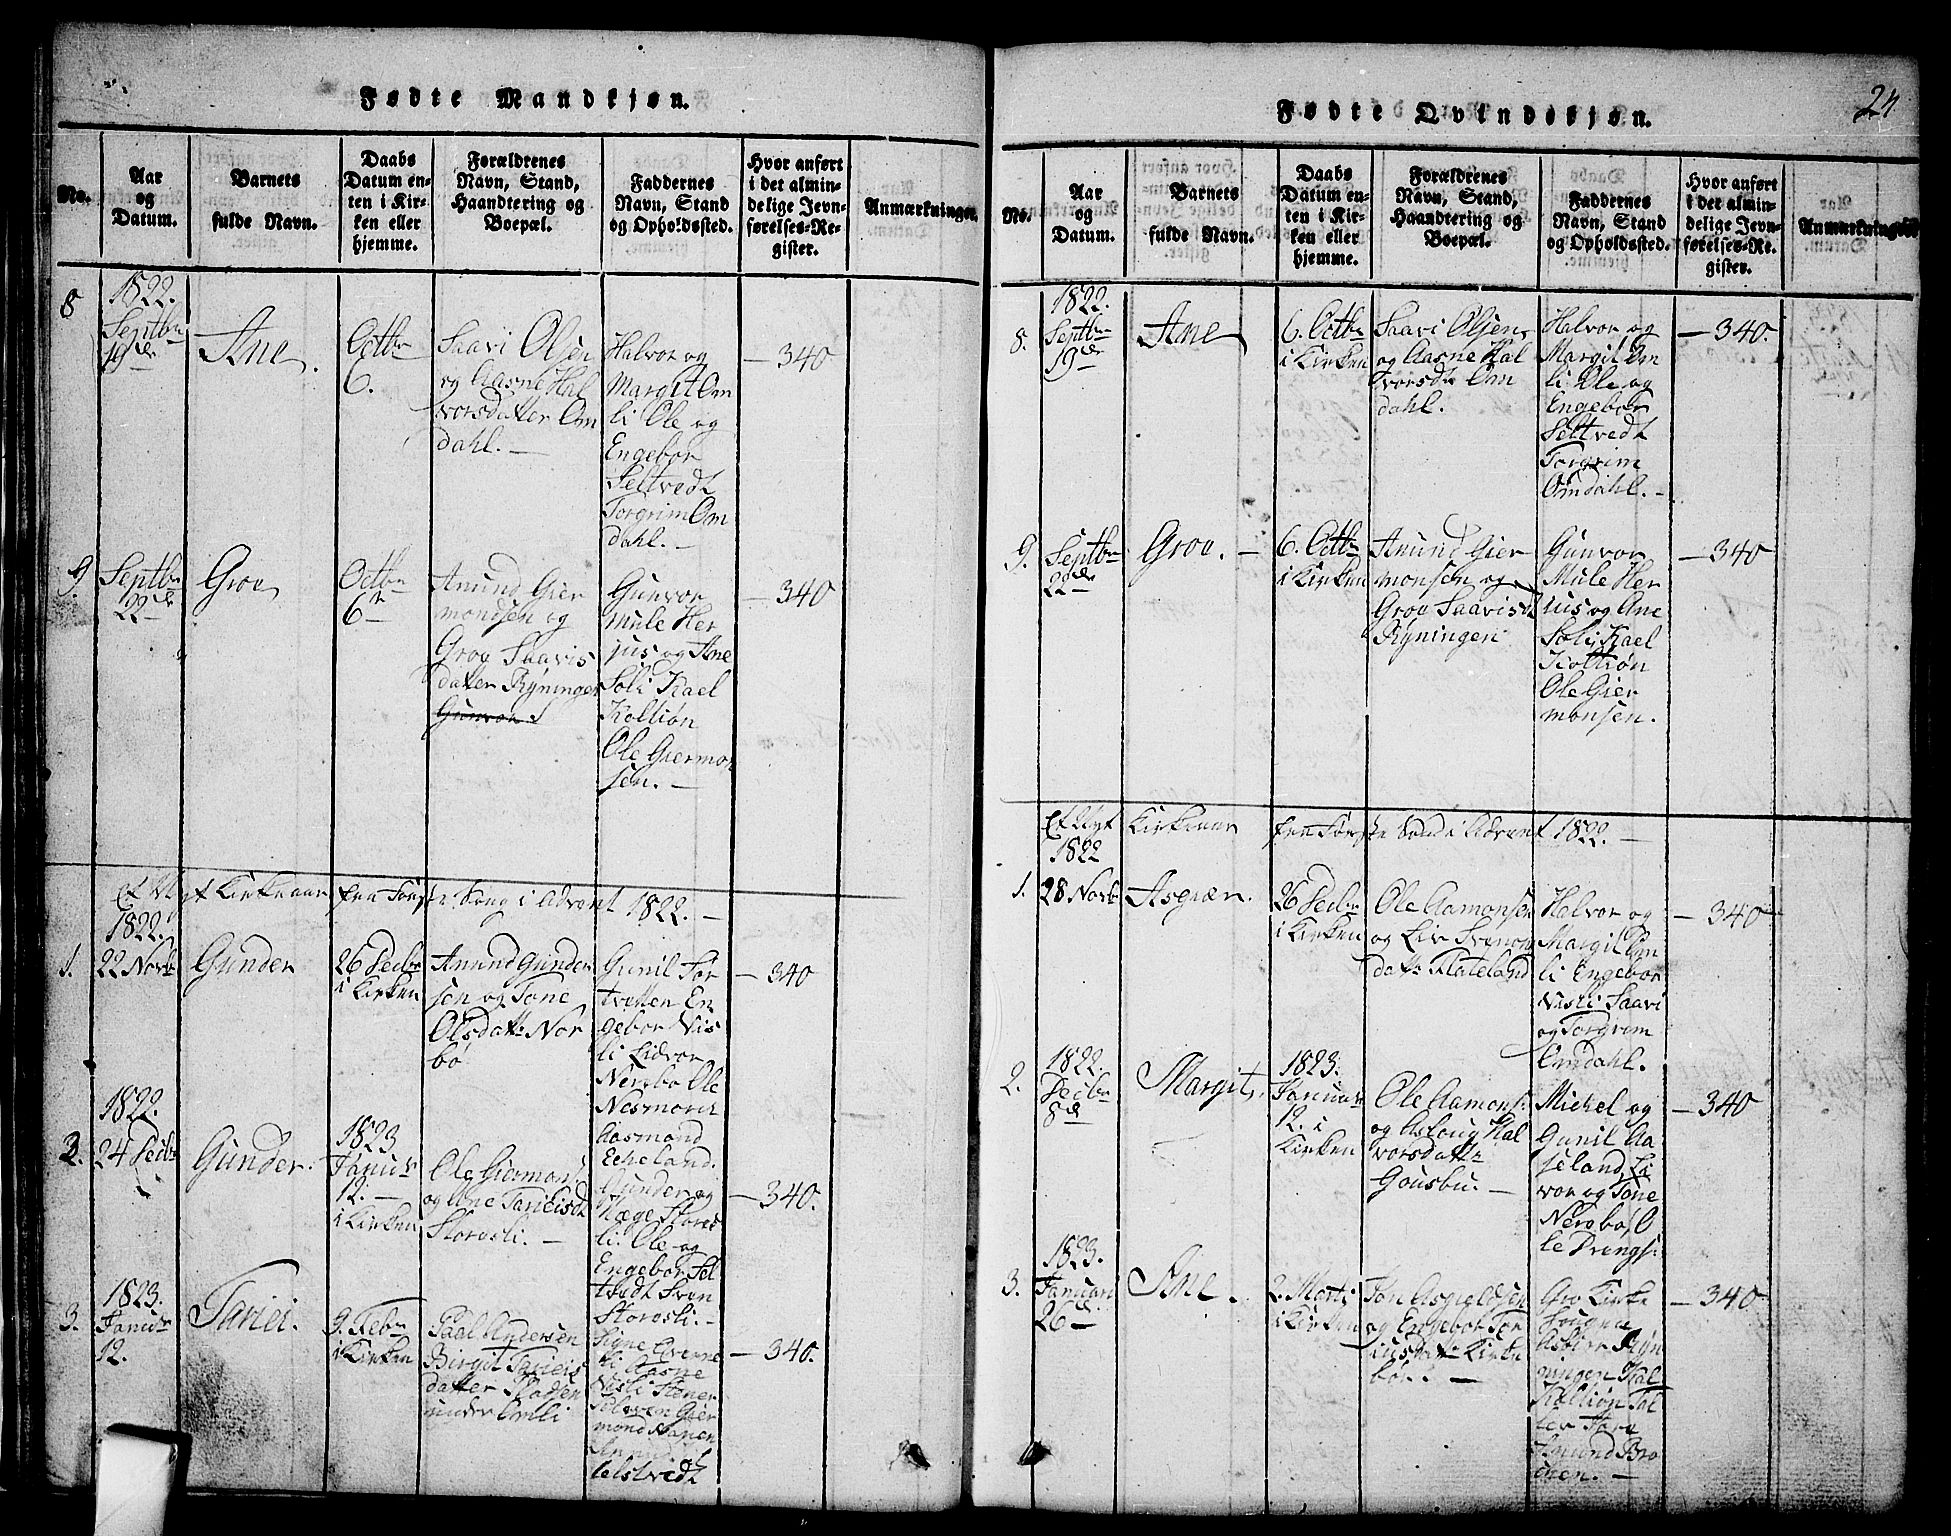 Fødte Mandkjøn.
No.
Aar
og
Datum.
Barnets
fulde Navn.
Daabs
Datum en-
ten i Kir-
ken eller
hjemme.
Forældrenes
Navn, Stand,
Haandtering og
Boepæl.
Faddernes
Navn, Stand
og Opholdssted.
Hvor anført
i det almin-
delige Jevn-
førelses-Re-
gister.
Anmærkninger.
8
1822.
Septbr
19de
Ane.
Octbr
6.
Saavi Olsen
og Aasne Hal
vorsdatter Om
dahl. —
Halvor og
Margit Om
li Ole og
Engebor
Seltvedt
Torgrim Om
dahl. —
— 340
9.
Septbr
22de
Groe
Octbr
6te
Anund Gier
mondsen og
Groe Saavis
datter Ryningen
Gunvor
Gunvor
Mule Her
jus og Ane
Soli Kael
Koltiøn
Ole Giermon
sen. —
— 340
Et Nyt Kirkeaar fra Første Søndg i Advent 1822. —
1822.
1.
22 Novbr
Gunder
26 Decbr
i Kirken
Anund Gunder
sen og Tone
Olsdattr Nor
bø
Gunil For
tvetten En
gebor Vis
li Lidvor
Nersbø Ole
Nesmoen
Aasmond
Echeland.
— 340
1822.
2.
24 Decbr
Gunder.
1823
Januar
12. —
i Kirken
Ole Giermons
og Ane Tarieisdt
Storosli. —
Gunder og
Hæge Stores
li. Ole og
Engebor Sel
tvedt Sven
Storosli. —
— 340.
1823.
3.
Januar
12.
Tariei.
9. Febr
i Kirken
Paal Andersen
Birgit Tarieis
datter Pladsen
under Omli
Signe
li Aasne
Visli Stener
Gier
mond
— 340.
Fødte Qvindekjøn.
24
No.
Aar
og
Datum.
Barnets
fulde Navn.
Daabs
Datum en-
ten i Kir-
ken eller
hjemme.
Forældrenes
Navn, Stand,
Haandtering og
Boepæl.
Faddernes
Navn, Stand
og Opholdssted.
Hvor anført
i det almin-
delige Jevn-
førelses-Re-
gister.
Anmærkninger.
1822.
8.
Septbr
19de
Ane
6. Octbr
i Kirken
Saavi Olsen,
og Aasne Hal
vorsdtr Om
dahl.
Halvor og
Margit Om
li Ole og
Engebor
Seltvedt
Torgrim
Omdahl. —
— 340.
9.
Septbr
22de
Groe. —
6. Octbr
i Kirken
Anund Gier
monsen og
Groe Saavisd
Ryningen
Gunvor
Mule Her
jus og Ane
Soli, Kael
Koltiøn
Ole Gier
monsen.
— 340
Et Nyt Kirkeaar fra Første Sønd i Advent 1822. —
1822
1.
28 Novbr
Asgiær.
26 Decbr
i Kirken
Ole Aamonsen
og Liv Svenom
dattr Flateland
Halvor og
Margit Om
li Engebor
Visli Saavi
og Torgrim
Omdahl.
— 340
1822.
2.
Decbr
8de
Margit,
1823.
Januar
12. i
Kirken
Ole Aamons:
og Aslaug Hal
vorsdattr
Gousbu. —
Michel og
Gunil Aa
seland, Li
vor og Tone
Nersbø, O
le Drengs:
— 340
1823.
3.
Januari
26de
Ane.
2. Marti
i Kirken
Jon Asgieldsen
og Engebor Ter
iusdattr Kirke
bø. —
Gro Kirke
Asbiør Ryn
ningen Kal
Koltiøn
Amund Bro
chen. —
— 340